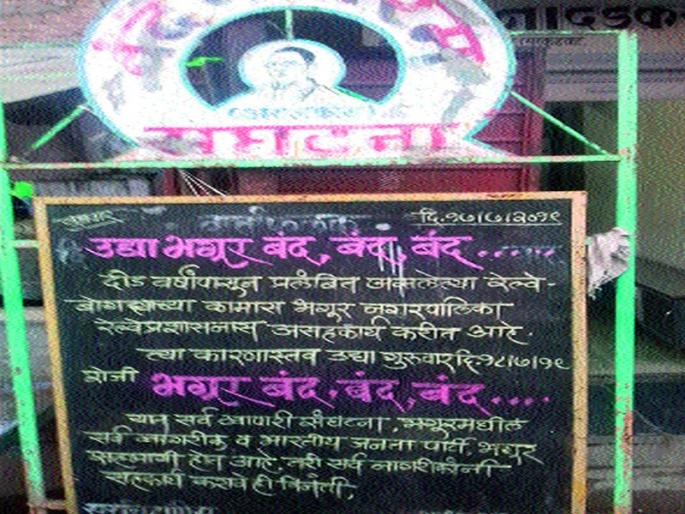 संघटना
दि.१७/७/२०१९
उद्या भगूर बंद, बंद, बंद......
दीड वर्षांपासुन प्रलंबित असलेल्या रेल्वे-
बोगद्याच्या कामास भगूर नगरपालिका
रेल्वेप्रशासनास असहकार्य करीत आहे.
त्या कारणास्तव उद्या गुरुवार दि.१८/७/१९
रोजी भगूर बंद, बंद, बंद....
यात सर्व व्यापारी संघटना, भगूरमधील
सर्व नागरीक व भारतीय जनता पार्टी, भगूर
सहभागी होत आहे, तरी सर्व नागरीकांनी
सहकार्य करावे ही विनंती,